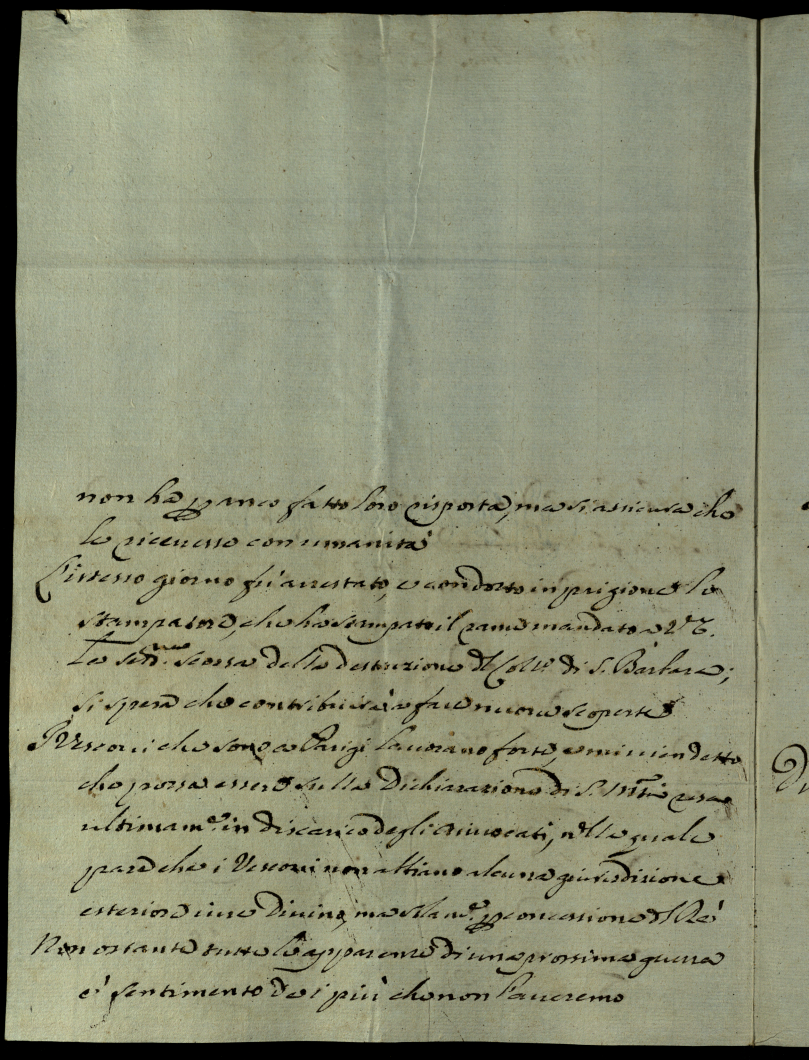 non ha per anco fatto loro risposta, ma si assicura che
le riceuesse con umanità
L'istesso giorno fù arrestato, e condotto in prigione lo
stampatore, che ha stampato il rame mandato a V. E.
La sed.ne scorsa della destruzione del Coll.o di S. Barbara;
si spera che contribuirà a fare nuoue scoperte
I Vescoui che sono a Parigi lauorano forte, e mi uien detto
che possa essere sulla Dichiarazione di S. M.tà resa
ultimam.te in discarico degli Auuocati, nella quale
pare che i Vescoui non abbiano alcuna giurisdizione
esteriore iure Diuino, ma solam.te per concessione del Rè
Non ostante tutte le apparenze di una prossima guerra
è sentimento de i più che non l'aueremo